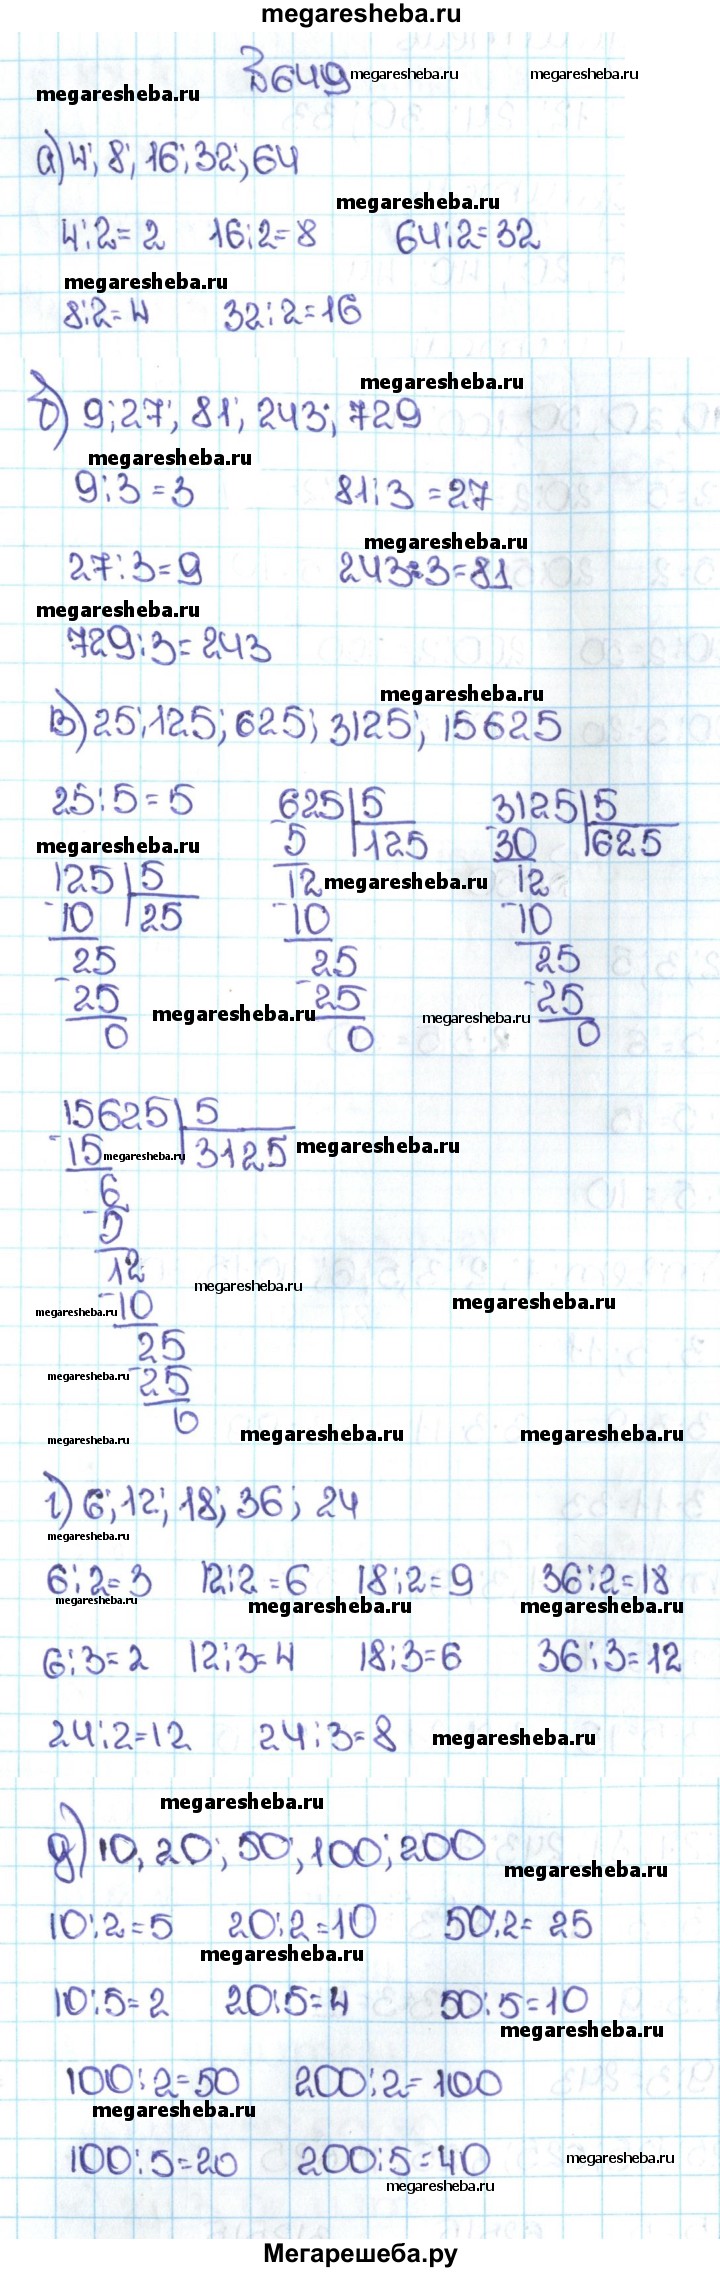 megaresheba.ru
649 megaresheba.ru megaresheba.ru
megaresheba.ru
а) 4; 8; 16; 32; 64
megaresheba.ru
4:2=2 16:2=8 64:2=32
megaresheba.ru
8:2=4 32:2=16
megaresheba.ru
б) 9; 27; 81; 243; 729
megaresheba.ru
9:3=3 81:3=27
megaresheba.ru
27:3=9 243:3=81
megaresheba.ru
729:3=243
megaresheba.ru
в) 25; 125; 625; 3125; 15625
25:5=5 625 5 3125 5
megaresheba.ru 5 125 30 625
125 5 12 megaresheba.ru 12
-10 25 -10 -10
25 25 25
-25 megaresheba.ru -25 megaresheba.ru -25
0 0 0
15625 5
-15 megaresheba.ru 3125 megaresheba.ru
6
-5
12 megaresheba.ru
megaresheba.ru -10 megaresheba.ru
25
megaresheba.ru -25
megaresheba.ru 0 megaresheba.ru megaresheba.ru
г) 6; 12; 18; 36; 24
megaresheba.ru
6:2=3 12:2=6 18:2=9 36:2=18
megaresheba.ru megaresheba.ru megaresheba.ru
6:3=2 12:3=4 18:3=6 36:3=12
24:2=12 24:3=8 megaresheba.ru
megaresheba.ru
д) 10, 20; 50; 100; 200
megaresheba.ru
10:2=5 20:2=10 50:2=25
megaresheba.ru
10:5=2 20:5=4 50:5=10
megaresheba.ru
100:2=50 200:2=100
megaresheba.ru
100:5=20 200:5=40 megaresheba.ru
megaresheba.ru
Мегарешеба.ру